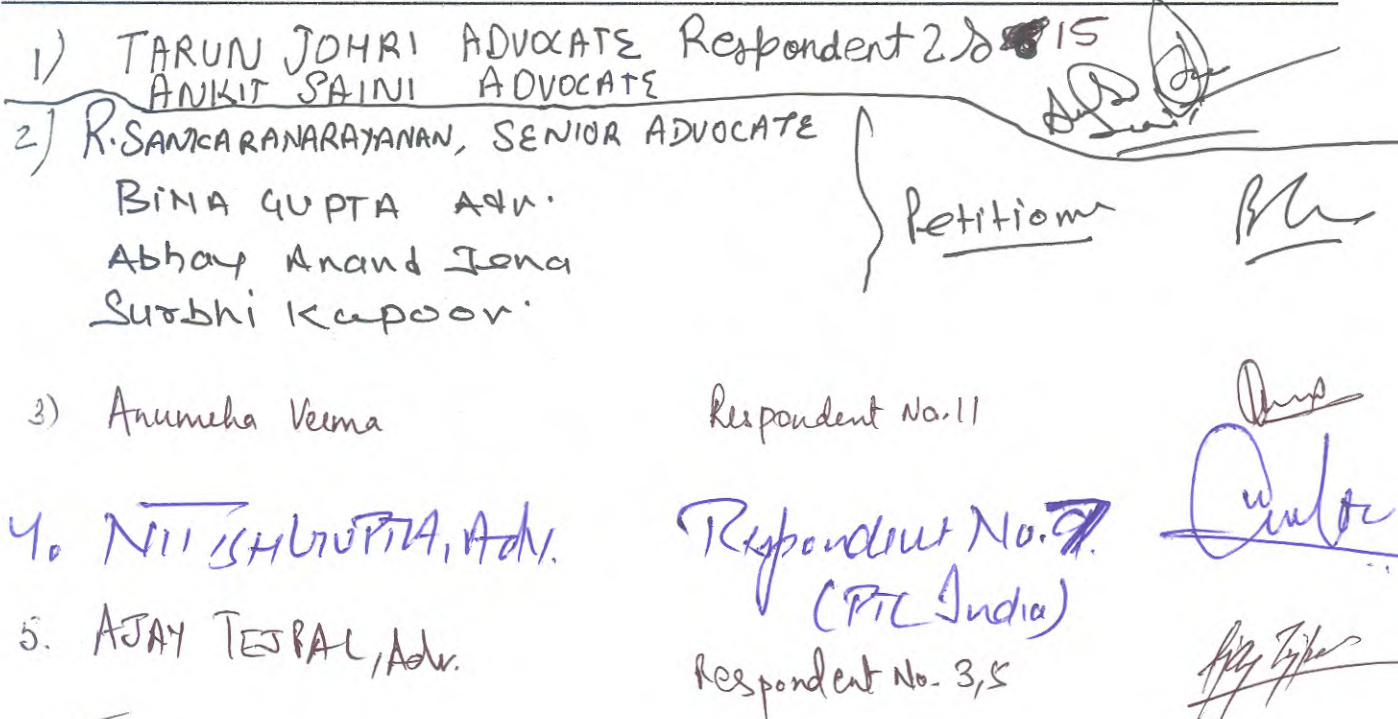 1) TARUN JOHRI ADVOCATE Respondent 2 & 15
ANKIT SAINI ADVOCATE
2) R. SANKARANARAYANAN, SENIOR ADVOCATE
BINA GUPTA Adv.
Abhay Anand Jena
Surbhi Kapoor.
Petitioner
3) Anumeha Verma Respondent No.11
4. NITISH GUPTA, Adv. Respondent No.
(PTC India)
5. AJAY TEJPAL, Adv. Respondent No. 3,5